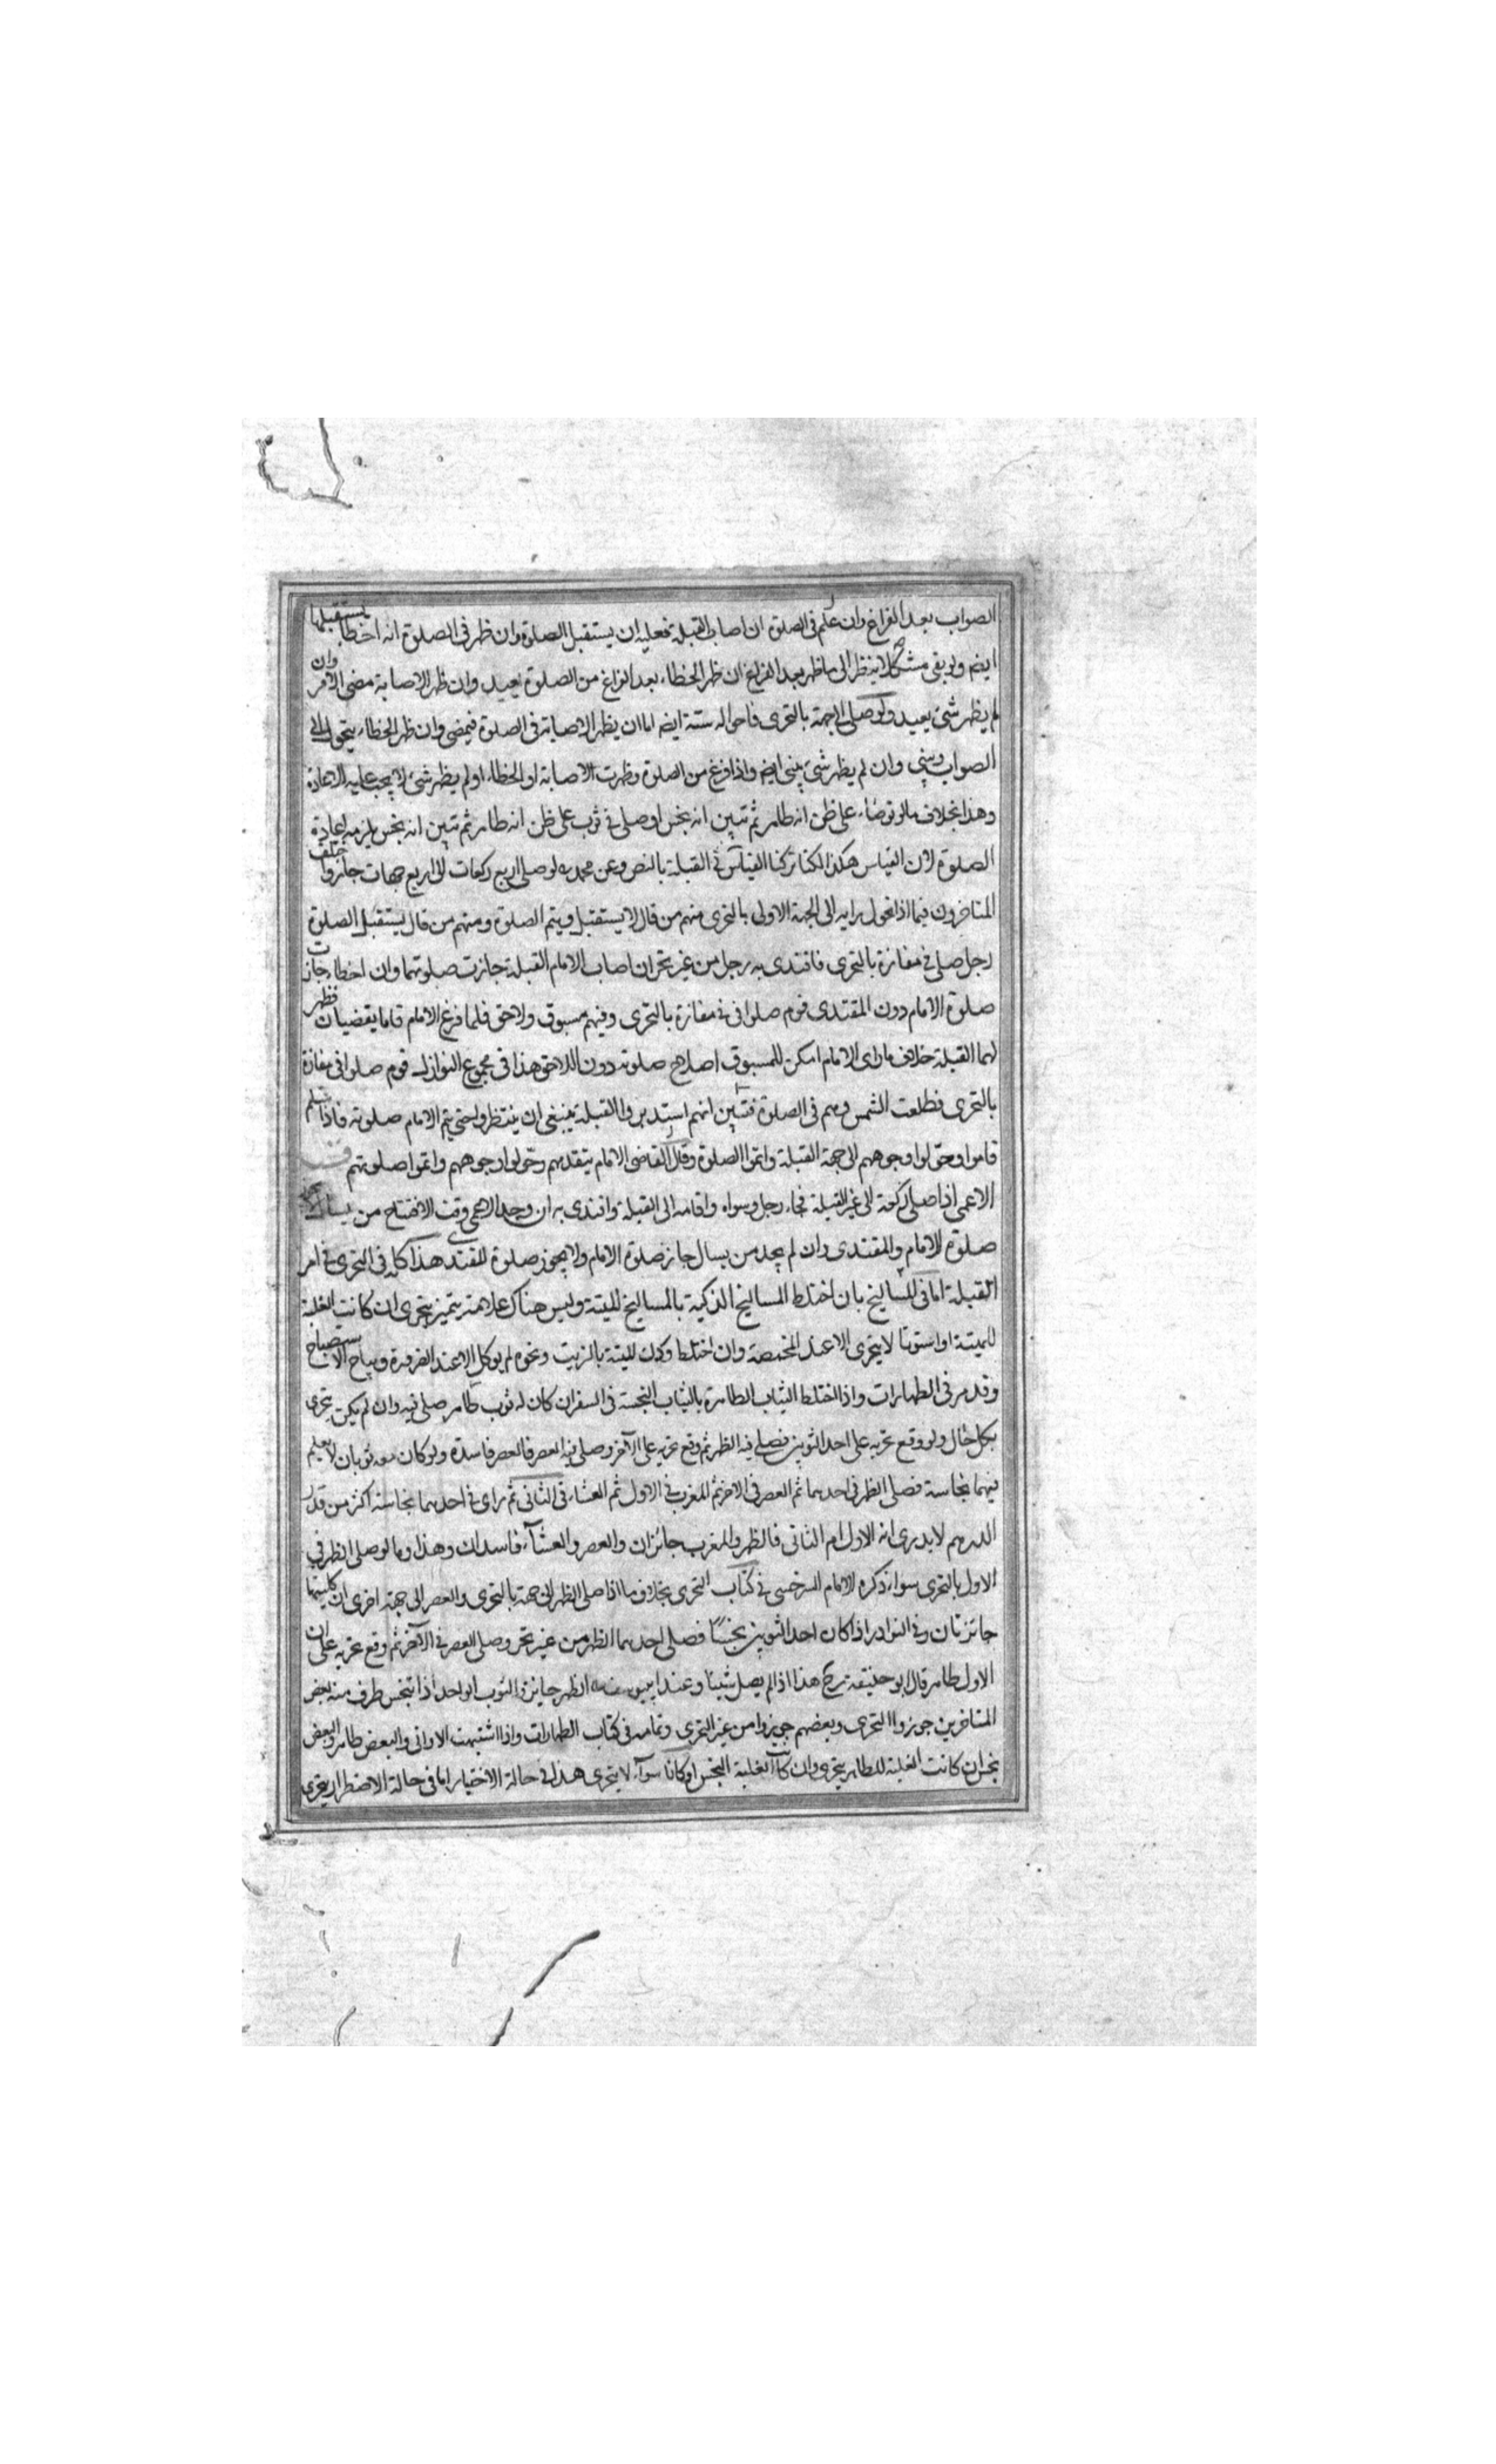 الصواب بعد الفراغ وان علم فى الصلوة ان اصاب القبلة فعليه ان يستقبل الصلوة وان ظهر فى الصلوة انه اخطأ يستقبلها
ايضم ولو بقى مشكلا ينظر الى ما ظهر بعد الفراغ ان ظهر الخطاء بعد الفراغ من الصلوة يعيد وان ظهر الاصابة مضى الامر وان
لم يظهر شئ يعيد ولو صلى الى جهة بالتحرى فاحواله ستة ايضم اما ان يظهر الاصابة فى الصلوة فيمضى وان ظهر الخطاء يتحول الى
الصواب ويبنى وان لم يظهر شئ يبنى ايضم واذا فرغ من الصلوة وظهرت الاصابة او الخطاء او لم يظهر شئ لا يجب عليه الاعادة
وهذا بخلاف ما لو توضاء على ظن انه طاهر ثم تبين انه نجس او صلى فى ثوب على ظن انه طاهر ثم تبين انه نجس يلزمه اعادة
الصلوة لان القياس هكذا لكنا تركنا القياس فى القبلة بالنص وعن محمد ره لو صلى اربع ركعات الى اربع جهات جاز واختلف
المتاخرون فيما اذا تحول رايه الى الجهة الاولى بالتحرى منهم من قال لا يستقبل ويتم الصلوة ومنهم من قال يستقبل الصلوة
رجل صلى فى مفازة بالتحرى فاقتدى به رجل من غير تحر ان اصاب الامام القبلة جازت صلوتهما وان اخطاء جازت
صلوة الامام دون المقتدى قوم صلوا فى مفازة بالتحرى وفيهم مسبوق ولاحق فلما فرغ الامام قاما يقضيان فظهر
لهما القبلة خلاف ما راى الامام امكن للمسبوق اصلاح صلوته دون اللاحق هذا فى مجموع النوازل قوم صلوا فى مفازة
بالتحرى فطلعت الشمس وهم فى الصلوة فتبين انهم استدبروا القبلة ينبغى ان ينتظروا حتى يتم الامام صلوته فاذا سلم
قاموا وحولوا وجوههم الى جهة القبلة واتموا الصلوة وقال القاضى الامام يتقدمهم وحولوا وجوههم واتموا صلوتهم
الاعمى اذا صلى ركعة الى غير القبلة فجاء رجل وسواه واقامه الى القبلة واقتدى به ان وجد الاعمى وقت الافتتاح من يسال
صلوة الامام والمقتدى وان لم يجد من يسال جاز صلوة الامام ولا يجوز صلوة المقتدى هذا كله فى التحرى فى امر
القبلة اما فى المساليخ بان اختلط المساليخ الذكية بالمساليخ الميتة وليس هناك علامة يتميز يتحرى ان كانت الغلبة
للميتة او استوتا لا يتحرى الا عند المخمصة وان اختلط ودك الميتة بالزيت ونحوه لم يوكل الا عند الضرورة ويباح الاستصباح
وقد مر فى الطهارات واذا اختلط الثياب الطاهرة بالثياب النجسة فى السفر ان كان له ثوب طاهر صلى فيه وان لم يكن يتحرى
بكل حال ولو وقع تحريه على احد الثوبين فصلى فيه الظهر ثم وقع تحريه على الآخر وصلى فيه العصر فالعصر فاسدة ولو كان معه ثوبان لا يعلم
فيهما نجاسة فصلى الظهر فى احدهما ثم العصر فى الاخر ثم المغرب فى الاول ثم العشاء فى الثانى ثم راى فى احدهما نجاسة اكثر من قدر
الدرهم لا يدرى انه الاول ام الثانى فالظهر والمغرب جائزان والعصر والعشآء فاسدان وهذا وما لو صلى الظهر فى
الاول بالتحرى سواء ذكره الامام السرخسى فى كتاب التحرى بخلاف ما اذا صلى الظهر الى جهة بالتحرى والعصر الى جهة اخرى ان كليتهما
جائزتان وفى النوادر اذا كان احد الثوبين نجسًا فصلى احدهما الظهر من غير تحر وصلى العصر فى الآخر ثم وقع تحريه على ان
الاول طاهر قال ابو حنيفة رح هذا اذا لم يصل شيئا وعند ابى يوسف ره الظهر جايزة الثوب الواحد اذا تنجس طرف منه بعض
المتاخرين جوزوا التحرى وبعضهم جوزوا من غير التحرى وتمامه فى كتاب الطهارات واذا اشتبهت الاوانى والبعض طاهر والبعض
نجس ان كانت الغلبة للطاهر يتحرى وان كانت الغلبة النجس او كانا سوآء لا يتحرى هذا فى حالة الاختيار اما فى حالة الاضطرار يتحرى